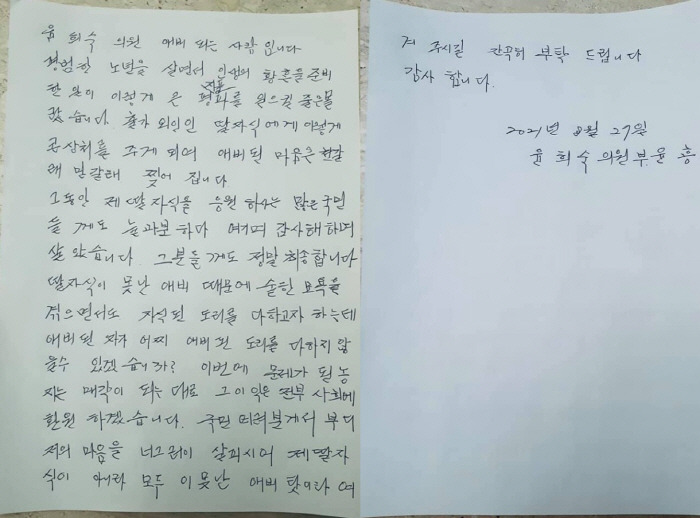 윤 희숙 의원 애비 되는 사람 입니다
평범한 노년을 살면서 인생의 황혼을 준비
한 일이 이렇게 큰 평지풍파를 일으킬 줄은몰
랐습니다. 출가 외인인 딸자식에게 이렇게
큰상처를 주게 되여 애비된 마음은 천갈
래 만갈래 찢어 집니다
그동안 제 딸자식을 응원 하시는 많은 국민
들 께도 늘과분하다 여기며 감사해 하며
살았습니다. 그분들께도 정말 죄송합니다
딸자식이 못난 애비 때문에 숱한 모욕을
겪으면서도 자식된 도리를 다하고자 하는데
애비된 자가 어찌 애비된 도리를 다하지 않
을수 있겠습니까? 이번에 문제가 된 농
지는 매각이 되는 대로 그 이익은 전부 사회에
환원 하겠습니다. 국민 여러분게서 부디
저의 마음을 너그러이 살피시어 제 딸자
식이 아니라 모두 이 못난 애비 탓이라 여
겨 주시길 간곡히 부탁 드립니다
감사 합니다.
2021년 8월 27일
윤 희숙 의원 부 윤 흥